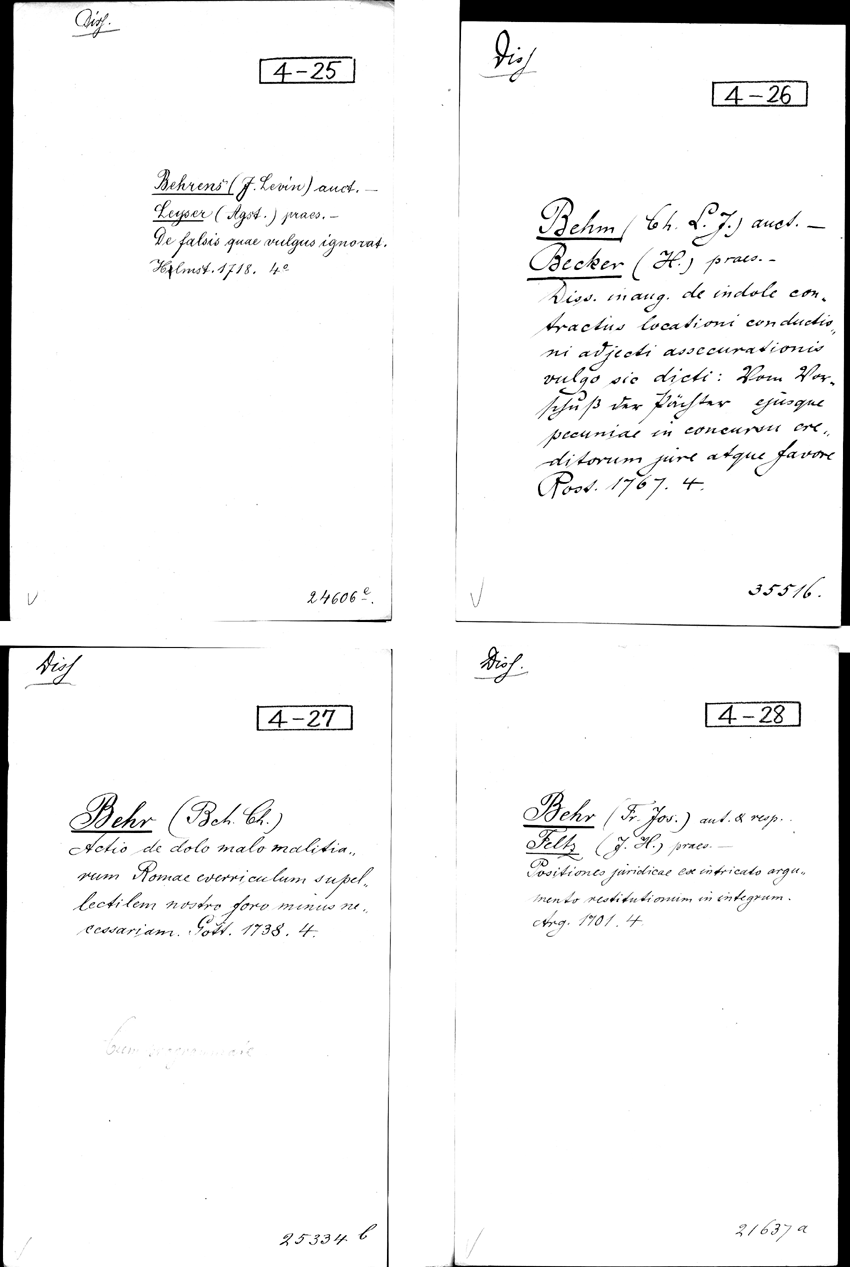 Diss.
4-25
Behrens (J. Levin) auct. —
Leyser (Agst.) praes. —
De falsis quae vulgus ignorat.
Helmst. 1718. 4°
24606 e.
Diss
4-26
Behm (Ch. L. J.) auct. —
Becker (H.) praes. —
Diss. inaug. de indole con„
tractus locationi conductio„
ni adjecti assecurationis
vulgo sic dicti: Vom Vor„
schuß der Pächter ejusque
pecuniae in concursu cre„
ditorum jure atque favore
Rost. 1767. 4.
35516.
Diss
4-27
Behr (Bch. Ch.)
Actio de dolo malo malitia„
rum Romae everriculum supel„
lectilem nostro foro minus ne„
cessariam. Gott. 1738. 4.
Cum programmate
25334 b
Diss.
4-28
Behr (Fr. Jos.) aut. & resp.
Feltz (J. H.) praes. —
Positiones juridicae ex intricato argu„
mento restitutionum in integrum.
Arg. 1701. 4.
21637 a